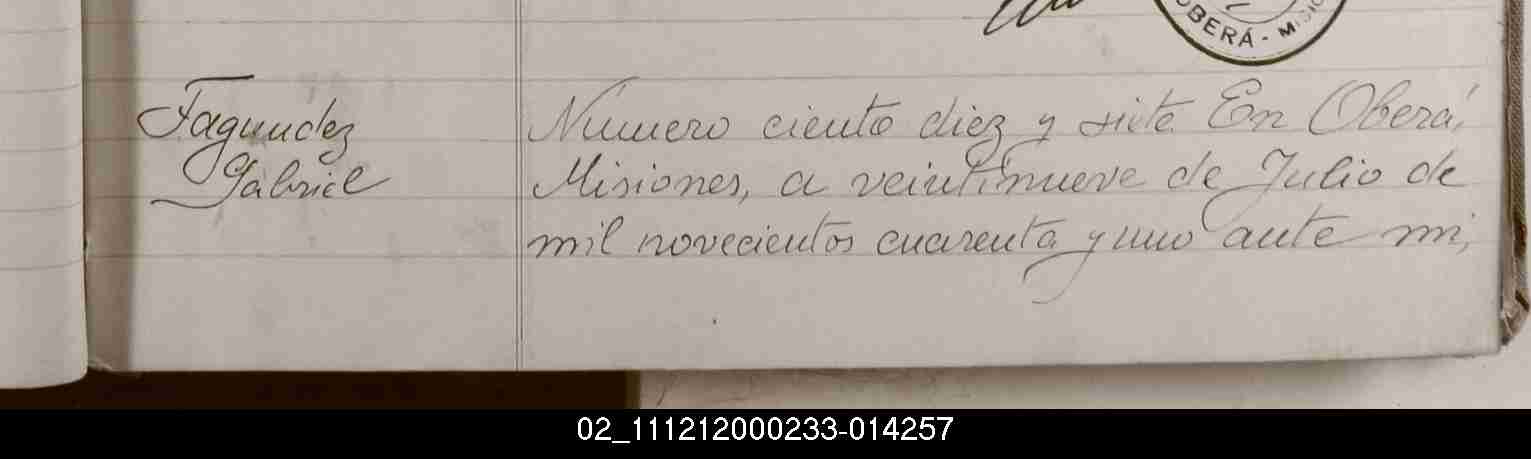 OBERÁ - MISIO
Fagundez
Gabriel
Número ciento diez y siete. En Oberá,
Misiones, a veintinueve de Julio de
mil novecientos cuarenta y uno ante mi,
02_111212000233-014257